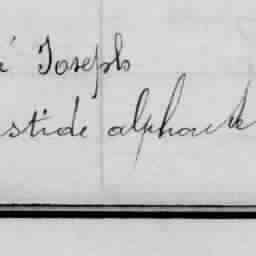 é Joseph
stide alphonse